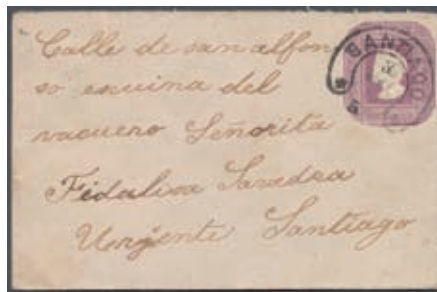 Calle de san alfon
so escuina del
vaquero Señorita
Fidalisa Savedra
Urgente Santiago
SANTIAGO